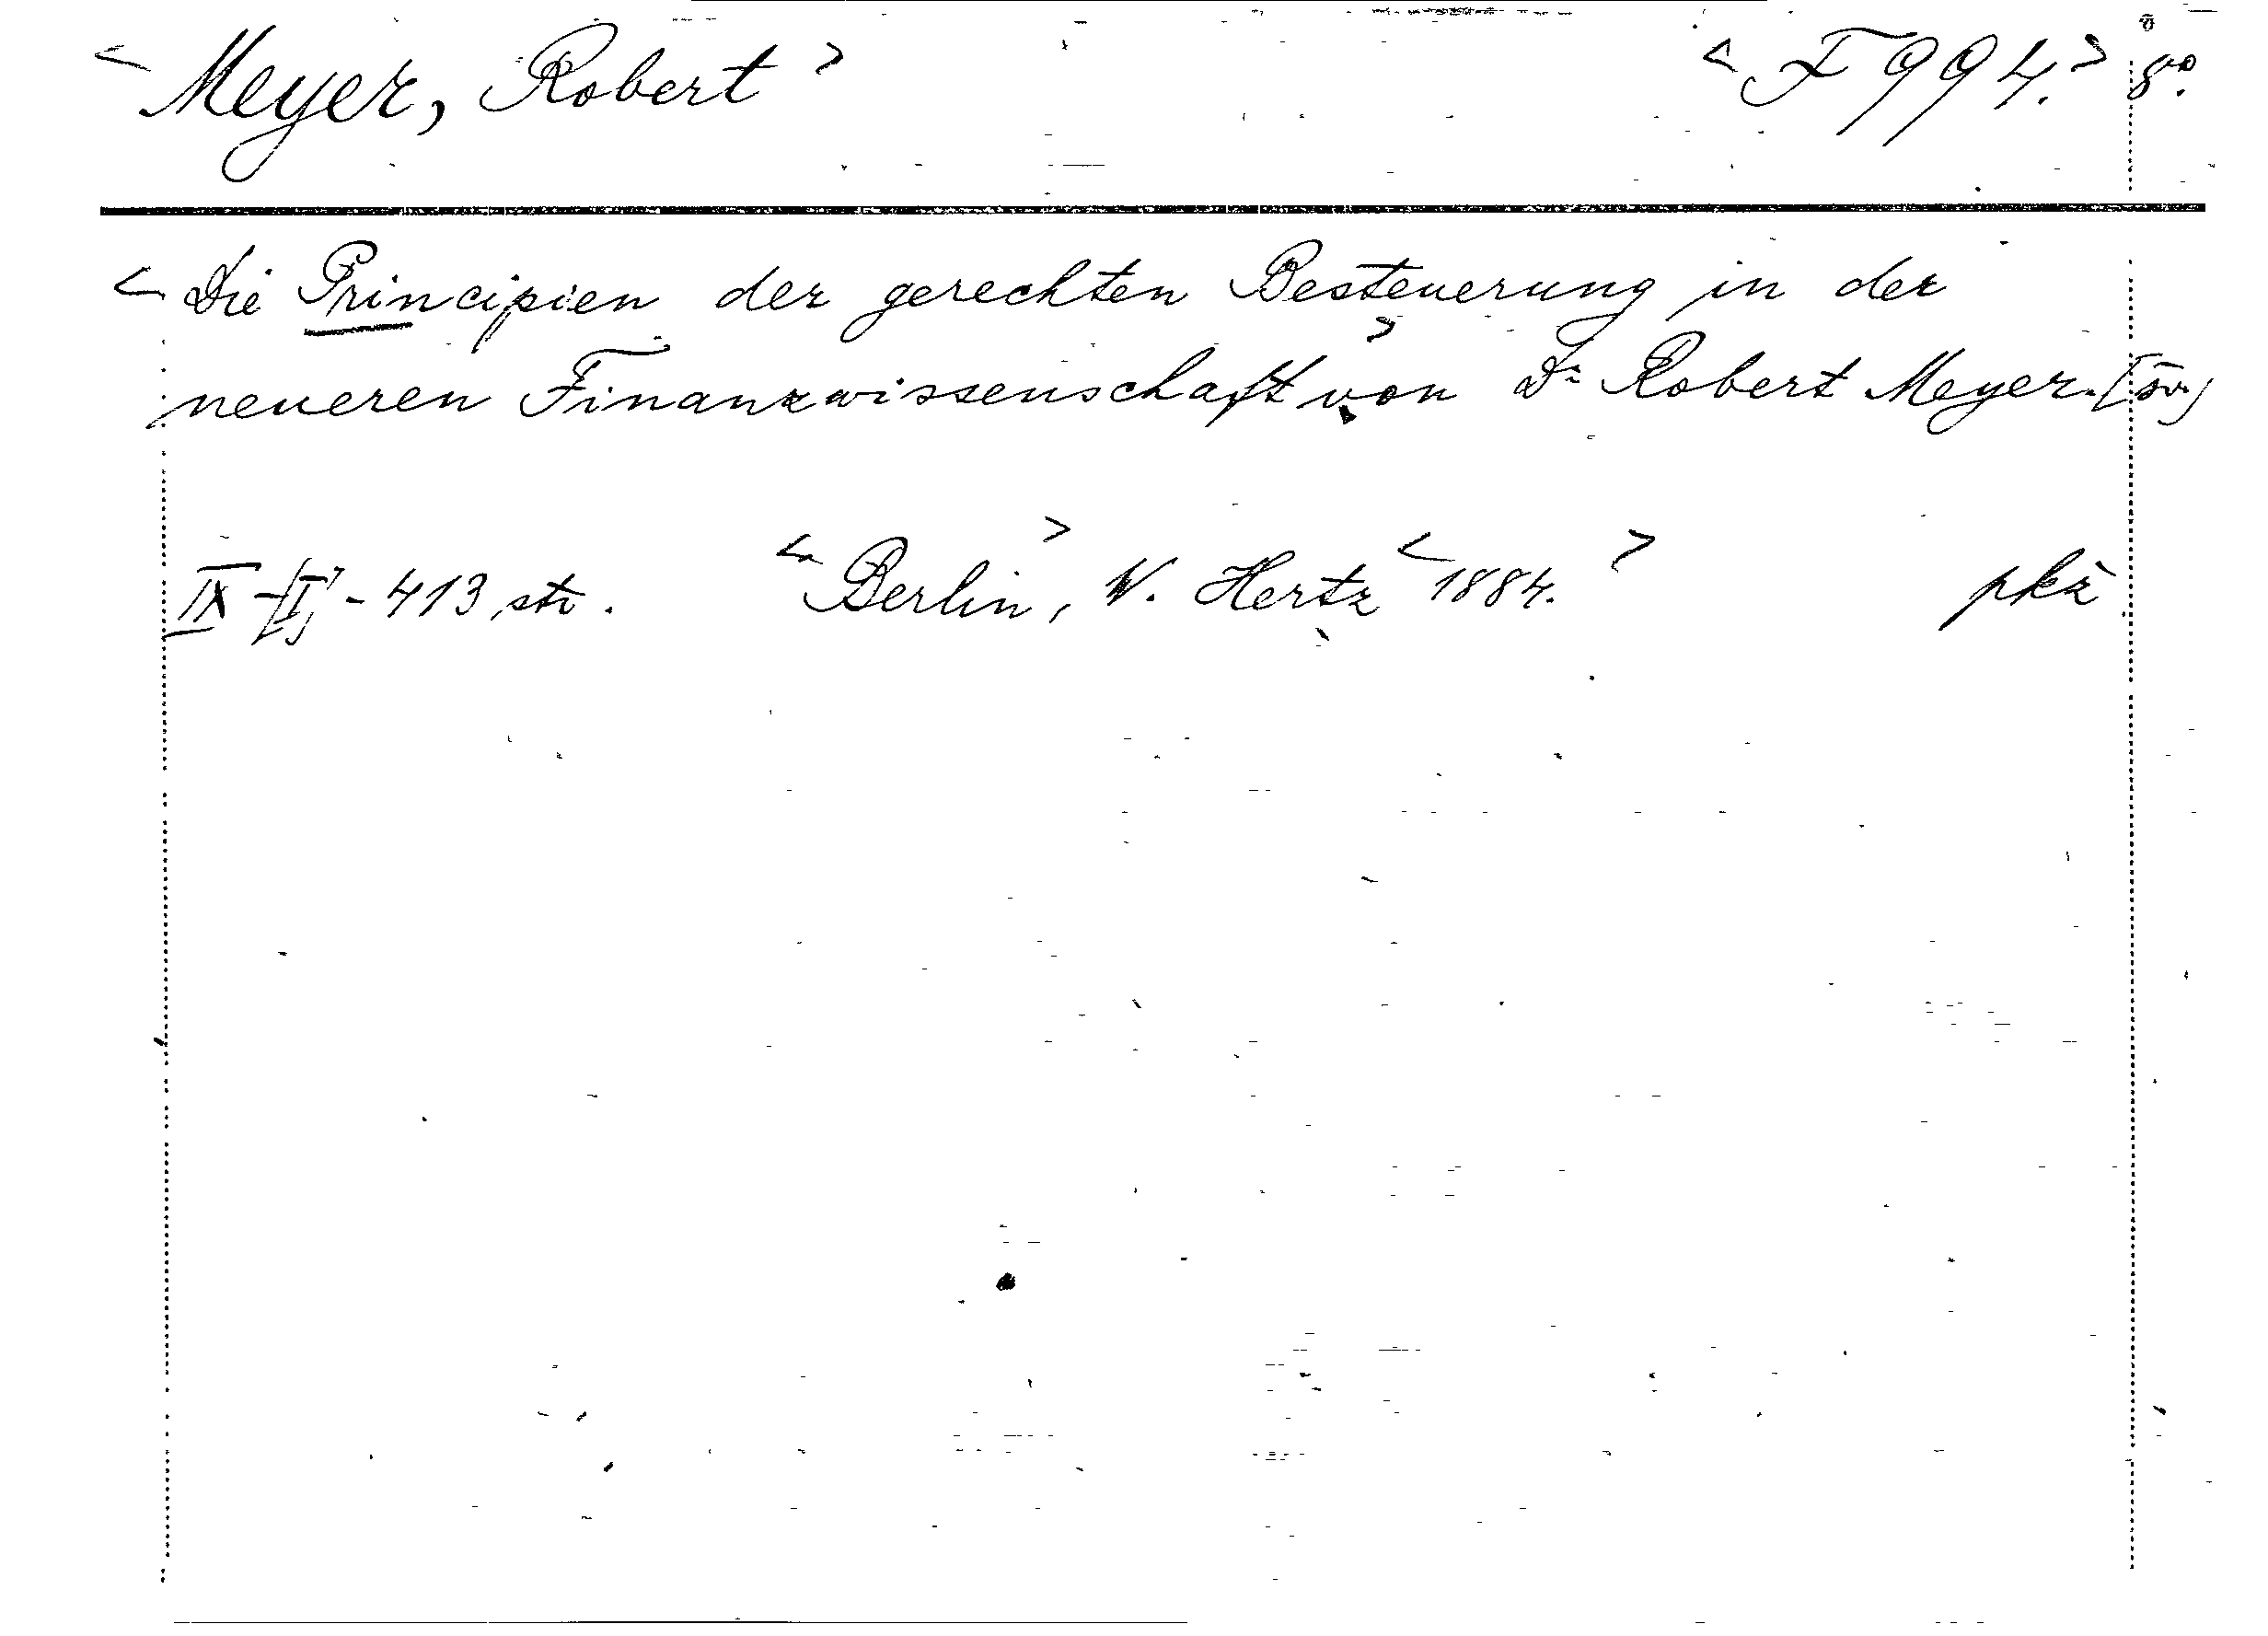 < Meyer, Robert > < F 994. > 8º.
< Die Principien der gerechten Besteuerung in der
neueren Finanzwissenschaft > von Dr Robert Meyer.
IX-[I]-413 str. < Berlin >, W. Hertz < 1884. > pkž